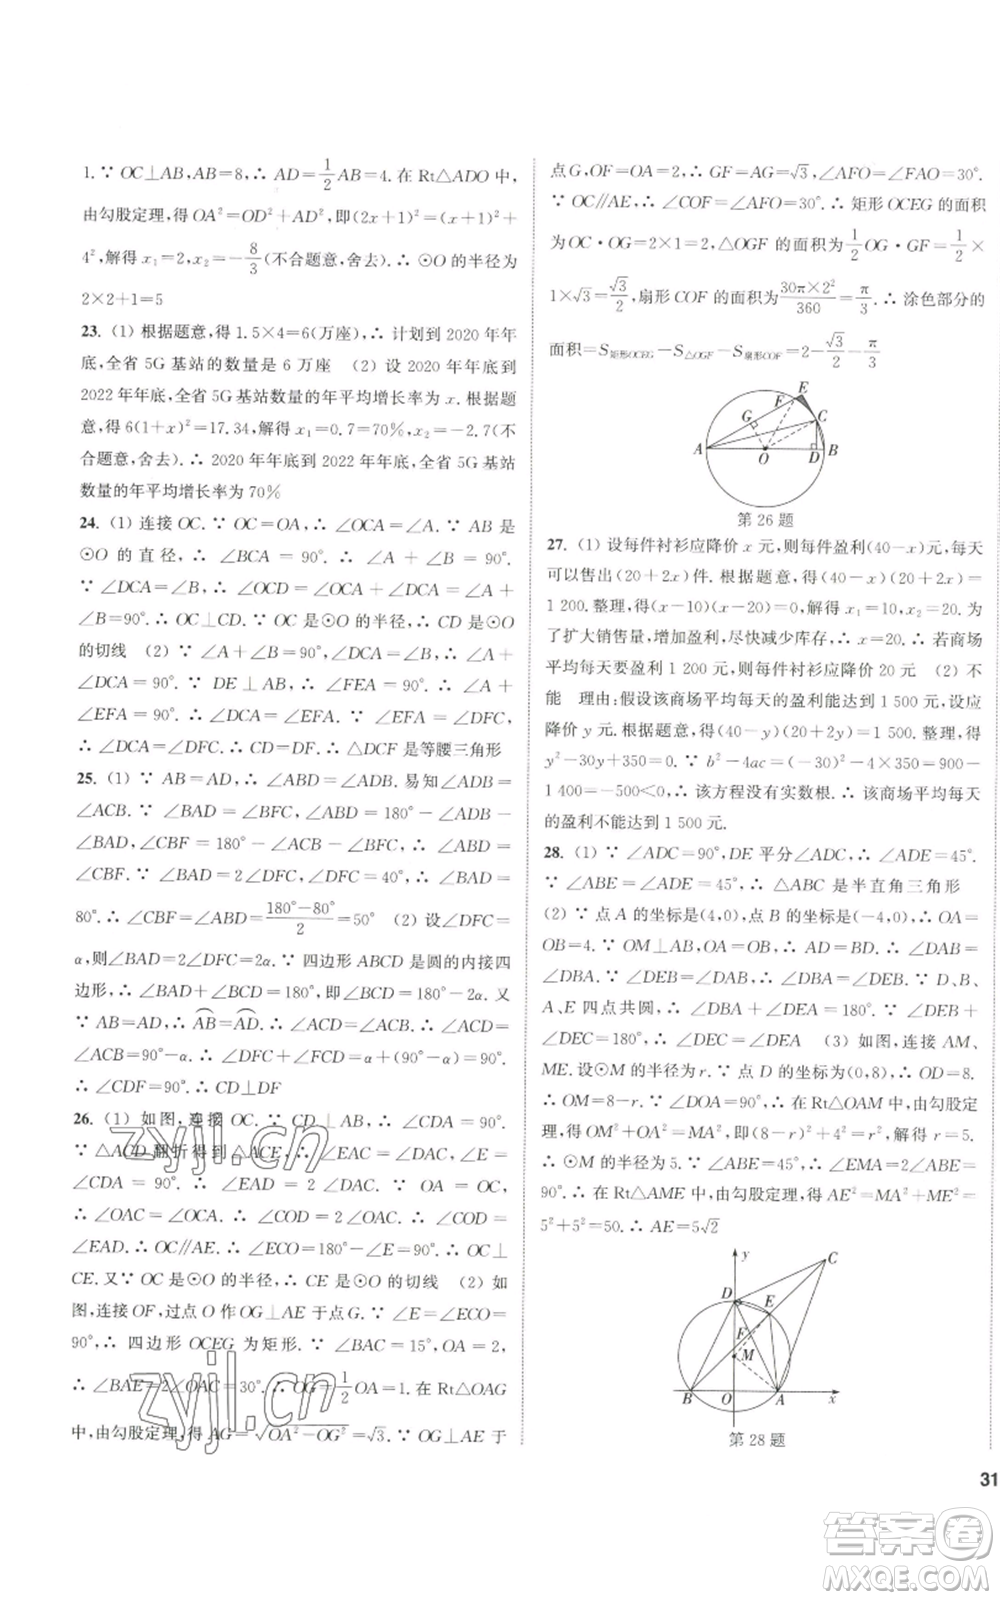 1.∵ OC⊥AB,AB=8,∴ AD=1/2AB=4.在 Rt△ADO 中,
由勾股定理,得 OA²=OD²+AD²,即(2x+1)²=(x+1)²+
4²,解得 x₁=2,x₂=-8/3(不合题意,舍去).∴ ⊙O 的半径为
2×2+1=5
23. (1) 根据题意,得 1.5×4=6(万座),∴ 计划到 2020 年年
底,全省 5G 基站的数量是 6 万座 (2) 设 2020 年年底到
2022 年年底,全省 5G 基站数量的年平均增长率为 x.根据题
意,得 6(1+x)²=17.34,解得 x₁=0.7=70%,x₂=-2.7(不
合题意,舍去).∴ 2020 年年底到 2022 年年底,全省 5G 基站
数量的年平均增长率为 70%
24. (1) 连接 OC.∵ OC=OA,∴ ∠OCA=∠A.∵ AB 是
⊙O 的直径,∴ ∠BCA=90°.∴ ∠A+∠B=90°.
∵ ∠DCA=∠B,∴ ∠OCD=∠OCA+∠DCA=∠A+
∠B=90°.∴ OC⊥CD.∵ OC 是⊙O 的半径,∴ CD 是⊙O
的切线 (2) ∵ ∠A+∠B=90°,∠DCA=∠B,∴ ∠A+
∠DCA=90°.∵ DE⊥AB,∴ ∠FEA=90°.∴ ∠A+
∠EFA=90°.∴ ∠DCA=∠EFA.∵ ∠EFA=∠DFC,
∴ ∠DCA=∠DFC.∴ CD=DF.∴ △DCF 是等腰三角形
25. (1) ∵ AB=AD,∴ ∠ABD=∠ADB.易知∠ADB=
∠ACB.∵ ∠BAD=∠BFC,∠ABD=180°-∠BAD-
∠ADB,∠CBF=180°-∠ACB-∠BFC,∴ ∠ABD=
∠CBF.∵ ∠BAD=2∠DFC,∠DFC=40°,∴ ∠BAD=
80°.∴ ∠CBF=∠ABD=(180°-80°)/2=50° (2) 设∠DFC=
α,则∠BAD=2∠DFC=2α.∵ 四边形 ABCD 是圆的内接四
边形,∴ ∠BAD+∠BCD=180°,即∠BCD=180°-2α.又
∵ AB=AD,∴ AB⌒=AD⌒.∴ ∠ACD=∠ACB.∴ ∠ACD=
∠ACB=90°-α.∴ ∠DFC+∠FCD=α+(90°-α)=90°.
∴ ∠CDF=90°.∴ CD⊥DF
26. (1) 如图,连接 OC.∵ CD⊥AB,∴ ∠CDA=90°.
∵ △ACD 翻折得到△ACE,∴ ∠EAC=∠DAC,∠E=
∠CDA=90°.∴ ∠EAD=2∠OAC.∵ OA=OC,
∴ ∠OAC=∠OCA.∴ ∠COD=2∠OAC.∴ ∠COD=
∠EAD.∴ OC∥AE.∴ ∠ECO=180°-∠E=90°.∴ OC⊥
CE.又∵ OC 是⊙O 的半径,∴ CE 是⊙O 的切线 (2) 如
图,连接 OF,过点 O 作 OG⊥AE 于点 G.∵ ∠E=∠ECO=
90°,∴ 四边形 OCEG 为矩形.∵ ∠BAC=15°,OA=2,
∴ ∠BAE=2∠OAC=30°.∴ OG=1/2OA=1.在 Rt△OAG
中,由勾股定理,得 AG=√(OA²-OG²)=√3.∵ OG⊥AF 于
点 G,OF=OA=2,∴ GF=AG=√3,∠AFO=∠FAO=30°.
∵ OC∥AE,∴ ∠COF=∠AFO=30°.∴ 矩形 OCEG 的面积
为 OC·OG=2×1=2,△OGF 的面积为1/2OG·GF=1/2×
1×√3=√3/2,扇形 COF 的面积为(30π×2²)/360=π/3.∴ 涂色部分的
面积=S矩形OCEG-S△OGF-S扇形COF=2-√3/2-π/3
E
F
G
C
A
O
D
B
第 26 题
27. (1) 设每件衬衫应降价 x 元,则每件盈利(40-x)元,每天
可以售出(20+2x)件.根据题意,得(40-x)(20+2x)=
1 200.整理,得(x-10)(x-20)=0,解得 x₁=10,x₂=20.为
了扩大销售量,增加盈利,尽快减少库存,∴ x=20.∴ 若商场
平均每天要盈利 1 200 元,则每件衬衫应降价 20 元 (2) 不
能 理由:假设该商场平均每天的盈利能达到 1 500 元,设应
降价 y 元.根据题意,得(40-y)(20+2y)=1 500.整理,得
y²-30y+350=0.∵ b²-4ac=(-30)²-4×350=900-
1 400=-500<0,∴ 该方程没有实数根.∴ 该商场平均每天
的盈利不能达到 1 500 元.
28. (1) ∵ ∠ADC=90°,DE 平分∠ADC,∴ ∠ADE=45°.
∵ ∠ABE=∠ADE,∴ △ABC 是半直角三角形
(2) ∵ 点 A 的坐标是(4,0),点 B 的坐标是(-4,0),∴ OA=
OB=4.∵ OM⊥AB,OA=OB,∴ AD=BD.∴ ∠DAB=
∠DBA.∵ ∠DEB=∠DAB,∴ ∠DBA=∠DEB.∵ D、B、
A、E 四点共圆,∴ ∠DBA+∠DEA=180°.∵ ∠DEB+
∠DEC=180°,∴ ∠DEC=∠DEA (3) 如图,连接 AM,
ME.设⊙M 的半径为 r.∵ 点 D 的坐标为(0,8),∴ OD=8.
∴ OM=8-r.∵ ∠DOA=90°,∴ 在 Rt△OAM 中,由勾股定
理,得 OM²+OA²=MA²,即(8-r)²+4²=r²,解得 r=5.
∴ ⊙M 的半径为 5.∵ ∠ABE=45°,∴ ∠EMA=2∠ABE=
90°.∴ 在 Rt△AME 中,由勾股定理,得 AE²=MA²+ME²=
5²+5²=50.∴ AE=5√2
y
C
D
E
F
M
B
O
A
x
第 28 题
31
zyjl.cn
zyjl.cn
答案卷
MXQE.COM